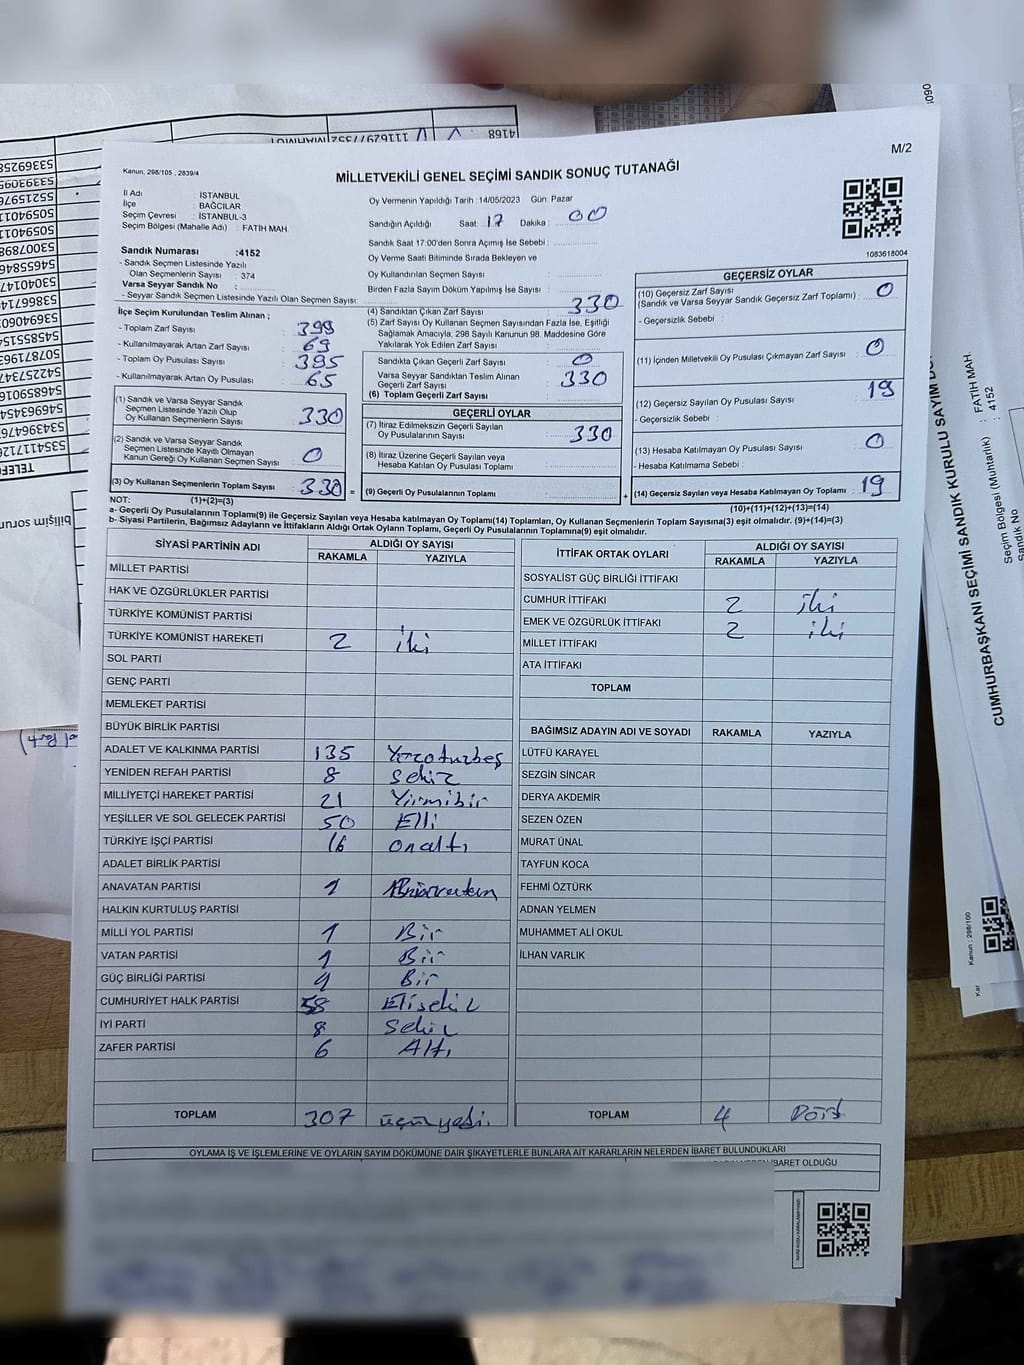 M/2
Kanun; 298/105 , 2839/4
MİLLETVEKİLİ GENEL SEÇİMİ SANDIK SONUÇ TUTANAĞI
İl Adı : İSTANBUL
İlçe : BAĞCILAR
Seçim Çevresi : İSTANBUL-3
Seçim Bölgesi (Mahalle Adı) : FATİH MAH.
Oy Vermenin Yapıldığı Tarih :14/05/2023 Gün: Pazar
Sandığın Açıldığı Saat : 17 Dakika : 00
Sandık Saat 17:00'den Sonra Açımış İse Sebebi :
Oy Verme Saati Bitiminde Sırada Bekleyen ve
Oy Kullandırılan Seçmen Sayısı :
Birden Fazla Sayım Döküm Yapılmış İse Sayısı :
1083618004
Sandık Numarası :4152
- Sandık Seçmen Listesinde Yazılı
Olan Seçmenlerin Sayısı : 374
Varsa Seyyar Sandık No :
- Seyyar Sandık Seçmen Listesinde Yazılı Olan Seçmen Sayısı:
İlçe Seçim Kurulundan Teslim Alınan ;
- Toplam Zarf Sayısı : 399
- Kullanılmayarak Artan Zarf Sayısı : 69
- Toplam Oy Pusulası Sayısı : 395
- Kullanılmayarak Artan Oy Pusulası : 65
(1) Sandık ve Varsa Seyyar Sandık
Seçmen Listesinde Yazılı Olup
Oy Kullanan Seçmenlerin Sayısı : 330
(2) Sandık ve Varsa Seyyar Sandık
Seçmen Listesinde Kayıtlı Olmayan
Kanun Gereği Oy Kullanan Seçmen Sayısı : 0
(3) Oy Kullanan Seçmenlerin Toplam Sayısı : 330 =
(4) Sandıktan Çıkan Zarf Sayısı : 330
(5) Zarf Sayısı Oy Kullanan Seçmen Sayısından Fazla İse, Eşitliği
Sağlamak Amacıyla, 298 Sayılı Kanunun 98. Maddesine Göre
Yakılarak Yok Edilen Zarf Sayısı :
Sandıkta Çıkan Geçerli Zarf Sayısı : 0
Varsa Seyyar Sandıktan Teslim Alınan
Geçerli Zarf Sayısı : 330
(6) Toplam Geçerli Zarf Sayısı :
GEÇERLİ OYLAR
(7) İtiraz Edilmeksizin Geçerli Sayılan
Oy Pusulalarının Sayısı : 330
(8) İtiraz Üzerine Geçerli Sayılan veya
Hesaba Katılan Oy Pusulası Toplamı :
(9) Geçerli Oy Pusulalarının Toplamı : +
GEÇERSİZ OYLAR
(10) Geçersiz Zarf Sayısı
(Sandık ve Varsa Seyyar Sandık Geçersiz Zarf Toplamı) : 0
- Geçersizlik Sebebi :
(11) İçinden Milletvekili Oy Pusulası Çıkmayan Zarf Sayısı : 0
(12) Geçersiz Sayılan Oy Pusulası Sayısı : 19
- Geçersizlik Sebebi :
(13) Hesaba Katılmayan Oy Pusulası Sayısı : 0
- Hesaba Katılmama Sebebi :
(14) Geçersiz Sayılan veya Hesaba Katılmayan Oy Toplamı : 19
NOT: (1)+(2)=(3) (10)+(11)+(12)+(13)=(14)
a- Geçerli Oy Pusulalarının Toplamı(9) ile Geçersiz Sayılan veya Hesaba katılmayan Oy Toplamı(14) Toplamları, Oy Kullanan Seçmenlerin Toplam Sayısına(3) eşit olmalıdır. (9)+(14)=(3)
b- Siyasi Partilerin, Bağımsız Adayların ve İttifakların Aldığı Ortak Oyların Toplamı, Geçerli Oy Pusulalarının Toplamına(9) eşit olmalıdır.
SİYASİ PARTİNİN ADI ALDIĞI OY SAYISI
RAKAMLA YAZIYLA
MİLLET PARTİSİ
HAK VE ÖZGÜRLÜKLER PARTİSİ
TÜRKİYE KOMÜNİST PARTİSİ
TÜRKİYE KOMÜNİST HAREKETİ 2 iki
SOL PARTİ
GENÇ PARTİ
MEMLEKET PARTİSİ
BÜYÜK BİRLİK PARTİSİ
ADALET VE KALKINMA PARTİSİ 135
YENİDEN REFAH PARTİSİ 8 sekiz
MİLLİYETÇİ HAREKET PARTİSİ 21 Yirmibir
YEŞİLLER VE SOL GELECEK PARTİSİ 50 Elli
TÜRKİYE İŞÇİ PARTİSİ 16 onaltı
ADALET BİRLİK PARTİSİ
ANAVATAN PARTİSİ 1
HALKIN KURTULUŞ PARTİSİ
MİLLİ YOL PARTİSİ 1 Bir
VATAN PARTİSİ 1 Bir
GÜÇ BİRLİĞİ PARTİSİ 1 Bir
CUMHURİYET HALK PARTİSİ 58 Ellisekiz
İYİ PARTİ 8 Sekiz
ZAFER PARTİSİ 6 Altı
TOPLAM 307 üçyüzyedi
İTTİFAK ORTAK OYLARI ALDIĞI OY SAYISI
RAKAMLA YAZIYLA
SOSYALİST GÜÇ BİRLİĞİ İTTİFAKI
CUMHUR İTTİFAKI 2 iki
EMEK VE ÖZGÜRLÜK İTTİFAKI 2 iki
MİLLET İTTİFAKI
ATA İTTİFAKI
TOPLAM
BAĞIMSIZ ADAYIN ADI VE SOYADI RAKAMLA YAZIYLA
LÜTFÜ KARAYEL
SEZGİN SİNCAR
DERYA AKDEMİR
SEZEN ÖZEN
MURAT ÜNAL
TAYFUN KOCA
FEHMİ ÖZTÜRK
ADNAN YELMEN
MUHAMMET ALİ OKUL
İLHAN VARLIK
TOPLAM 4 Dört
OYLAMA İŞ VE İŞLEMLERİNE VE OYLARIN SAYIM DÖKÜMÜNE DAİR ŞİKAYETLERLE BUNLARA AİT KARARLARIN NELERDEN İBARET BULUNDUKLARI
İBARET OLDUĞU
CUMHURBAŞKANI SEÇİMİ SANDIK KURULU SAYIM
Seçim Bölgesi (Muhtarlık) : FATİH MAH.
Sandık No : 4152
Kanun : 298/100
4168
bilişim